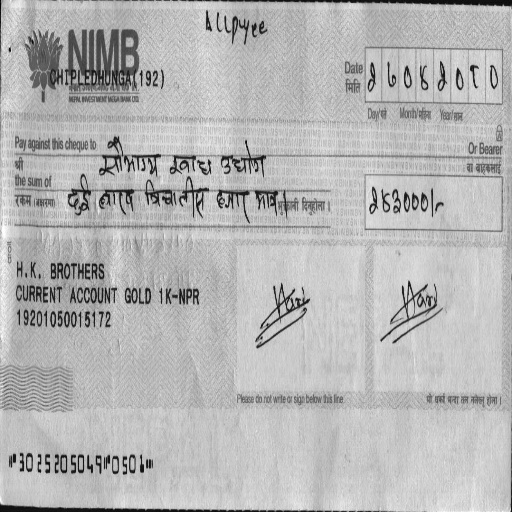 A/C Payee
NIMB
CHIPLEDHUNGA(192)
NEPAL INVESTMENT MEGA BANK LTD.
Date
मिति
26082080
Day/गते Month/महिना Year/साल
Pay against this cheque to
Or Bearer
श्री
सौभाग्य खाद्य उद्योग
वा वाहकलाई
the sum of
रकम (अक्षरमा)
दुई लाख त्रिचालीस हजार मात्र।
दिनुहोला ।
243000/-
H.K. BROTHERS
CURRENT ACCOUNT GOLD 1K-NPR
19201050015172
Hari
Hari
Please do not write or sign below this line
⑈3025205049⑈0501⑈